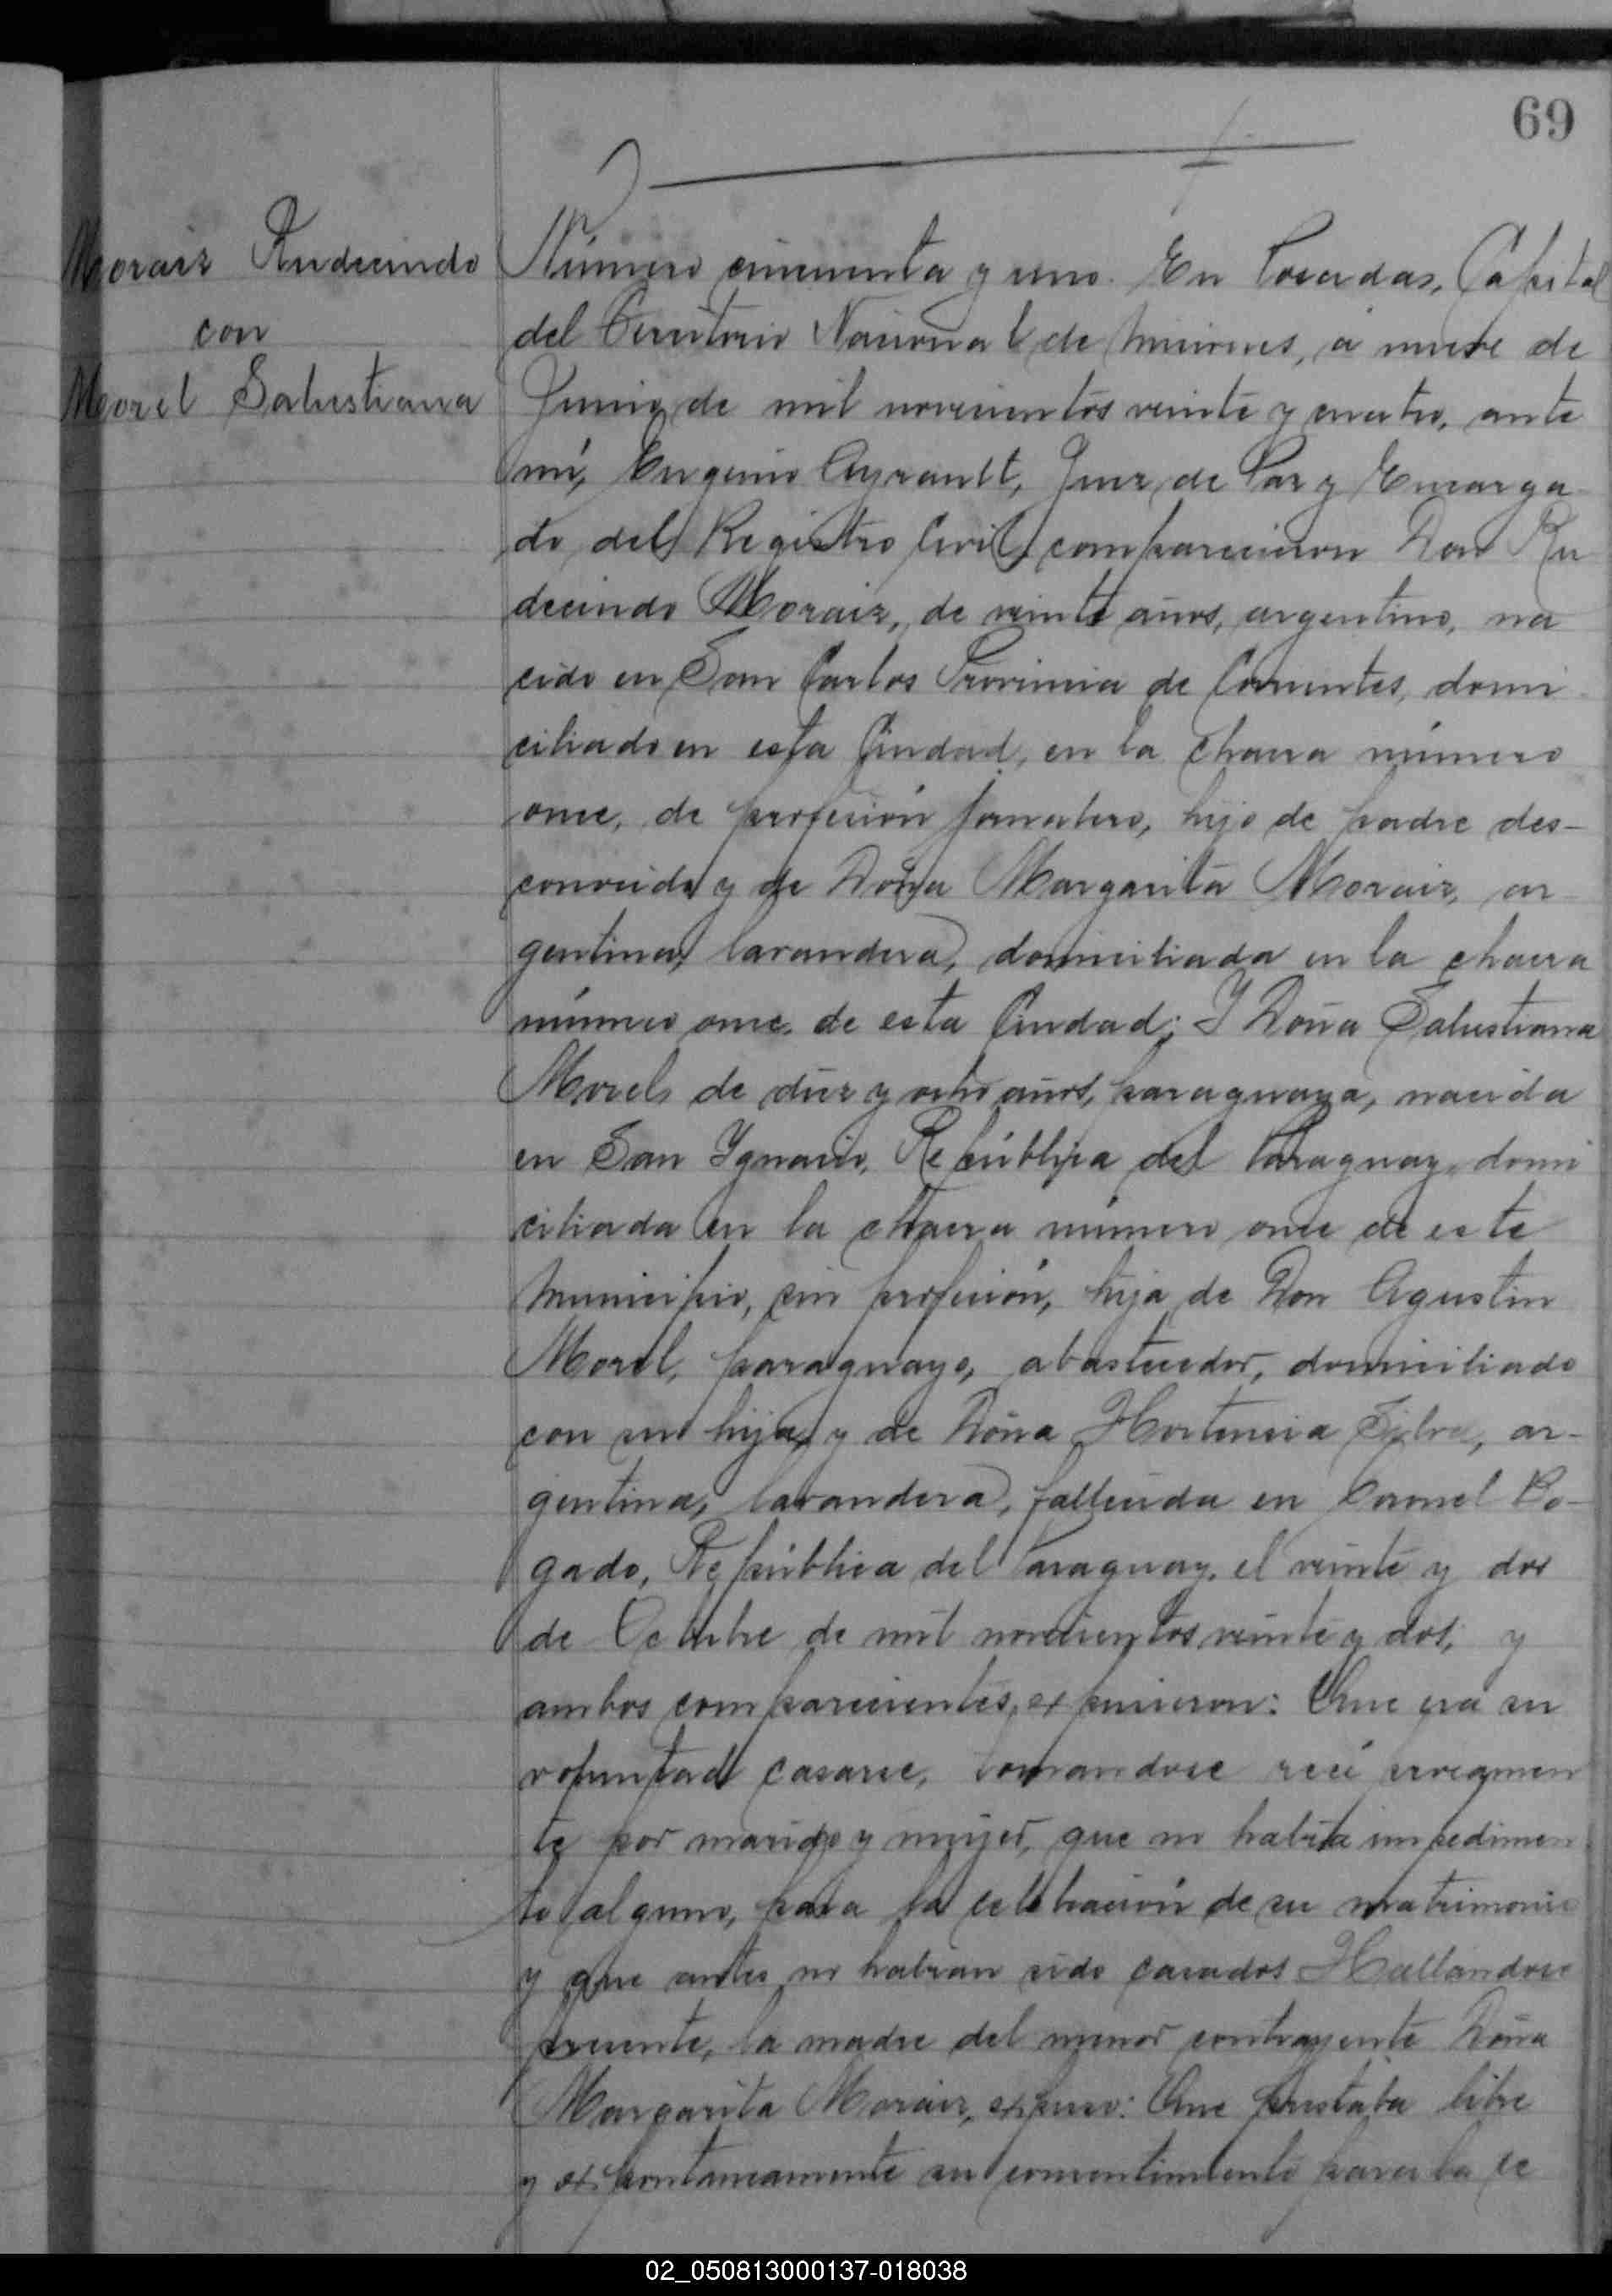 69
Moraiz Rudecindo
con
Morel Salustiana
Número cincuenta y uno. En Posadas, Capital
del Territorio Nacional de Misiones, á nueve de
Junio de mil novecientos veinte y cuatro, ante
mí, Eugenio Ayrault, Juez de Paz y Encarga-
do del Registro Civil, comparecieron Don Ru
decindo Moraiz, de veinte años, argentino, na
cido en San Carlos Provincia de Corrientes, domi
ciliado en esta Ciudad, en la chacra número
once, de profesión jornalero, hijo de padre des-
conocido y de Doña Margarita Moraiz, ar-
gentina, lavandera, domiciliada en la chacra
número once, de esta Ciudad; Y Doña Salustiana
Morel, de diez y ocho años, paraguaya, nacida
en San Ygnacio, República del Paraguay, domi
ciliada en la chacra número once de este
Municipio, sin profesión, hija de Don Agustin
Morel, paraguayo, abastecedor, domiciliado
con su hija, y de Doña Hortencia Silva, ar-
gentina, lavandera, fallecida en Coronel Bo-
gado, República del Paraguay, el veinte y dos
de Octubre de mil novecientos veinte y dos; y
ambos comparecientes, expusieron: Que era su
voluntad casarse, tomandose recíprocamen
te por marido y mujer, que no había impedimen
to alguno, para la celebración de su matrimonio
y que antes no habian sido casados Hallandose
presente, la madre del menor contrayente Doña
Margarita Moraiz, expuso: Que prestaba libre
y expontaneamente su consentimiento para la ce
02_050813000137-018038